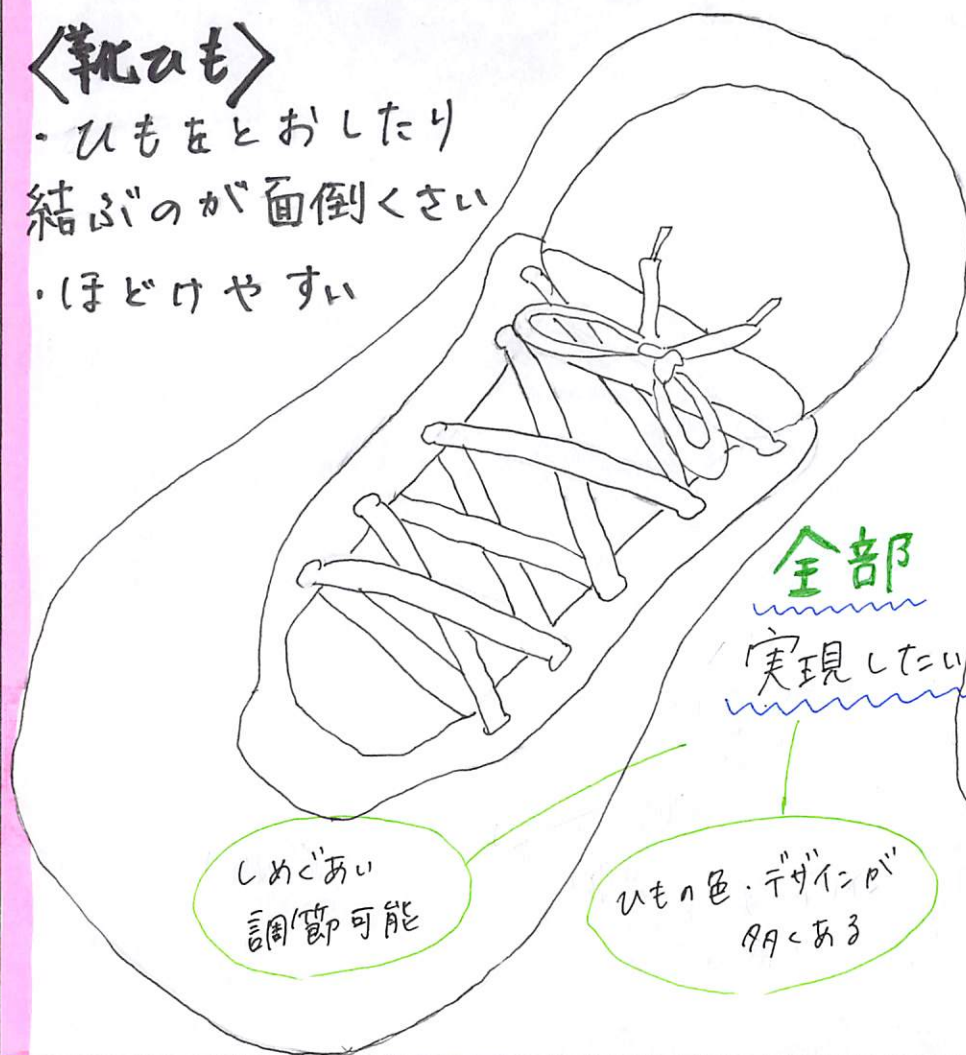 〈靴ひも〉
・ひもをとおしたり
結ぶのが面倒くさい
・ほどけやすい
全部
実現したい
しめぐあい
調節可能
ひもの色・デザインが
多くある